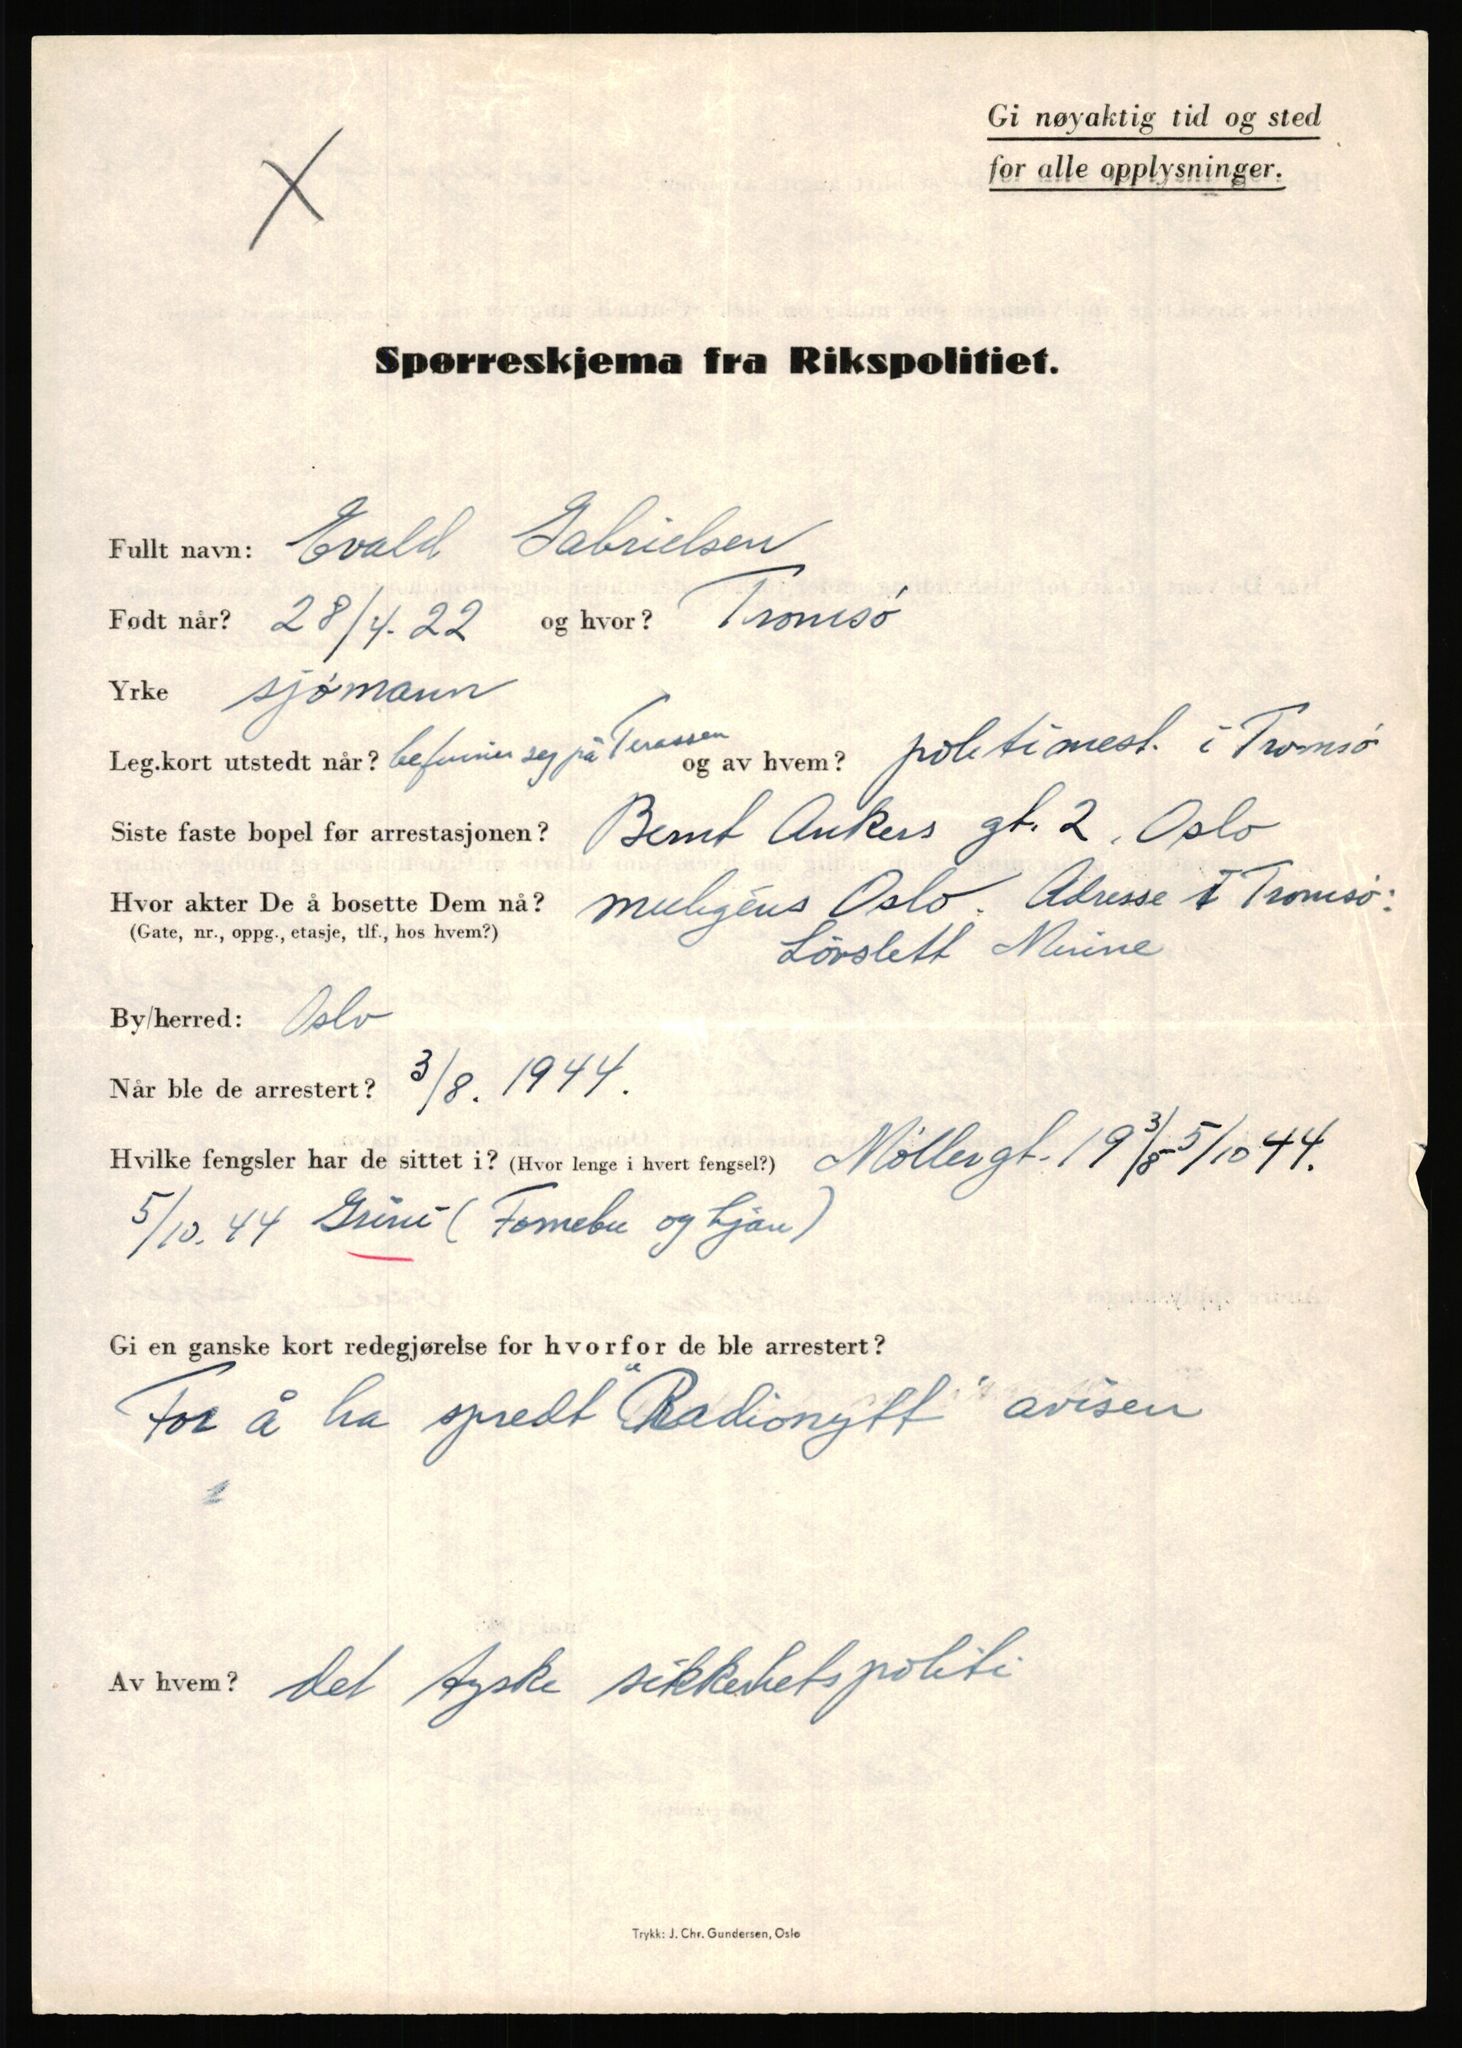 Gi nøyaktig tid og sted
for alle opplysninger.
Spørreskjema fra Rikspolitiet.
Fullt navn: Evald Gabrielsen
Født når? 28/4. 22 og hvor? Tromsø
Yrke sjømann
Leg.kort utstedt når? befinner seg på Terassen og av hvem? politimest. i Tromsø
Siste faste bopel før arrestasjonen? Bernt Ankers gt. 2, Oslo
Hvor akter De å bosette Dem nå? muligens Oslo. Adresse i Tromsø:
(Gate, nr., oppg., etasje, tlf., hos hvem?) Lövslett
By/herred: Oslo
Når ble de arrestert? 3/8. 1944.
Hvilke fengsler har de sittet i? (Hvor lenge i hvert fengsel?) Møllergt. 19 3/8 5/10 44.
5/10. 44 Grini (Fornebu og Ljan)
Gi en ganske kort redegjørelse for hvorfor de ble arrestert?
For å ha spredt "Radionytt" avisen
Av hvem? det tyske sikkerhetspoliti
Trykk: J. Chr. Gundersen, Oslo